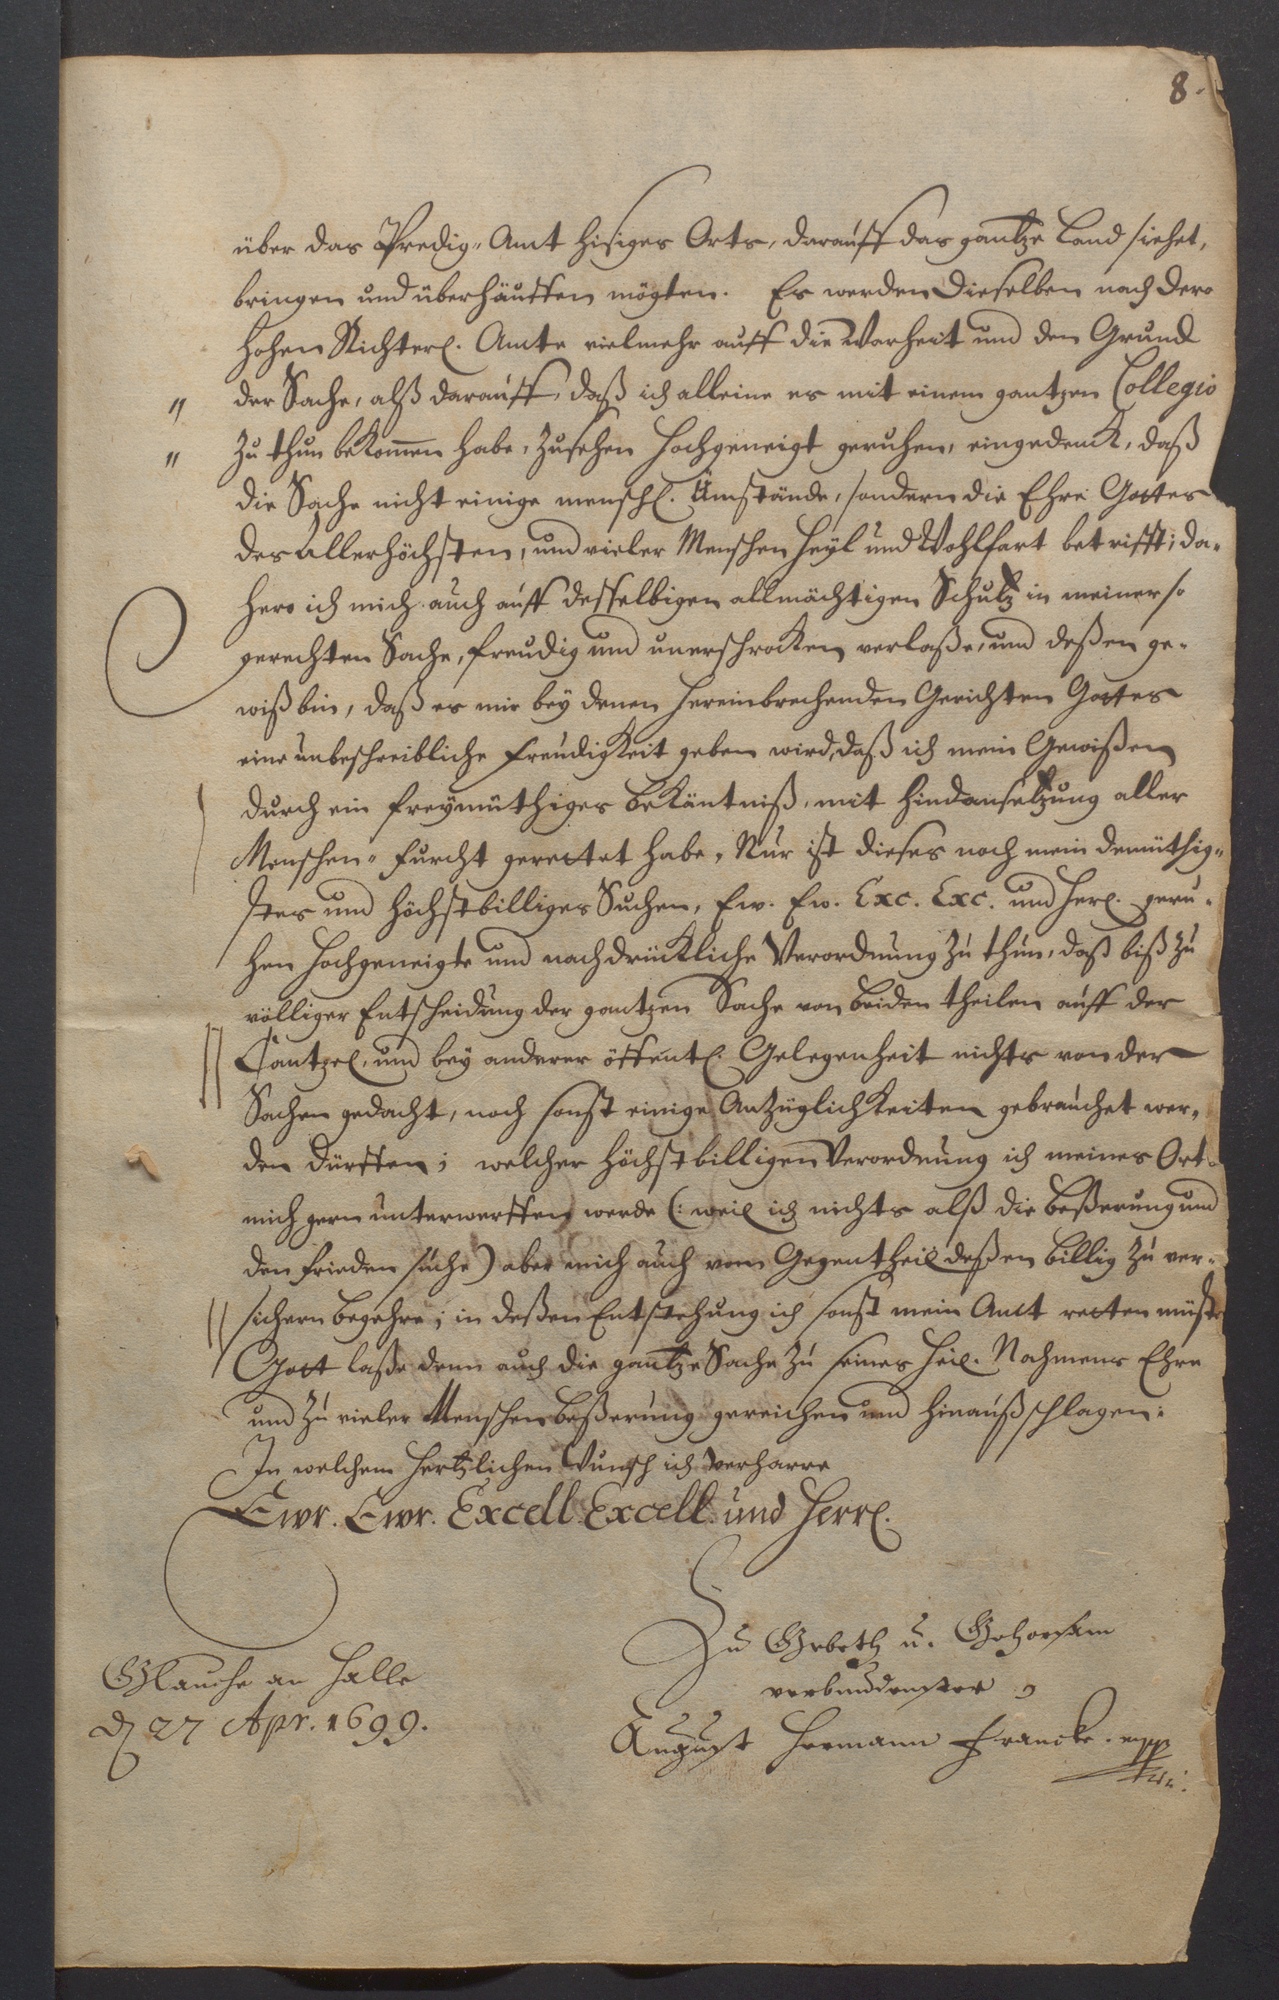 8.
über das Predig-Amt hisiges Orts, darauff das gantze Land siehet,
bringen und überhäuffen mögten. Es werden Dieselben nach dero
hohen Richterl. Amte vielmehr auff die Warheit und den Grund
der Sache, alß darauff, daß ich alleine es mit einem gantzen Collegio
zu thun bekom̄en habe, zusehen hochgeneigt geruhen, eingedenck, daß
die Sache nicht einige menschl. Umstände, sondern die Ehre Gottes
des Allerhöchsten, und vieler Menschen Heyl und Wohlfart betrifft; da-
hero ich mich auch auff desselbigen allmächtigen Schutz in meiner so
gerechten Sache, freudig und unerschrocken verlaße, und deßen ge-
wiß bin, daß es mir bey denen hereinbrechenden Gerichten Gottes
eine unbeschreibliche Freudigkeit geben wird, daß ich mein Gewißen
durch ein freymüthiges Bekäntniß, mit hindansetzung aller
Menschen-Furcht gerettet habe. Nur ist dieses noch mein demüthig-
stes und höchstbilliges Suchen, Ew. Ew. Exc. Exc. und Herl. geru-
hen hochgeneigte und nachdrückliche Verordnung zu thun, daß biß zu
völliger Entscheidung der gantzen Sache von beiden theilen auff der
Cantzel, und bey anderer öffentl. Gelegenheit nichts von der
Sachen gedacht, noch sonst einige Anzüglichkeiten gebrauchet wer-
den dürffen; welcher höchstbilligen Verordnung ich meines Orts
mich gern unterwerffen werde (: weil ich nichts alß die Beßerung und
den Frieden suche) aber mich auch vom Gegentheil deßen billig zu ver-
sichern begehre; in deßen Entstehung ich sonst mein Amt retten müste
Gott laße denn auch die gantze Sache zu seines heil. Nahmens Ehre
und zu vieler Menschen Beßerung gereichen und hinaußschlagen:
In welchem hertzlichen Wunsch ich verharre
Ewr. Ewr. Excell. Excell. und Herrl.
Zu Gebeth u. Gehorsam
verbundenster
August Hermann Francke. mpp
Glauche an Halle
d 27 Apr. 1699.